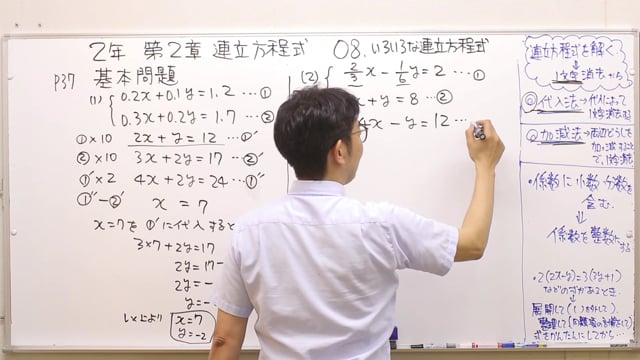 2年 第2章 連立方程式 08.いろいろな連立方程式
P37 基本問題
(1) { 0.2x+0.1y=1.2 …①
0.3x+0.2y=1.7 …②
①×10 2x+y=12 …①'
②×10 3x+2y=17 …②'
①'×2 4x+2y=24 …①''
①''-②' x = 7
x=7を①'に代入すると
3×7+2y=17
2y=17-
2y=-
y=-
以上より x=7
y=-2
(2) { 2/3x-1/6y=2 …①
x+y=8 …②
4x-y=12 …
連立方程式を解く
↓
1文字消去から
◎代入法→代入によって
1文字消す
◎加減法→両辺どうしを
加・減すること
で、1文字消す
・係数に小数・分数を
含む.
⇓
係数を整数に
する
・2(2x-y)=3(3y+1)
などの式があるとき.
↓
展開して( )を外して、
整理して(
式をかんたんにしてから…